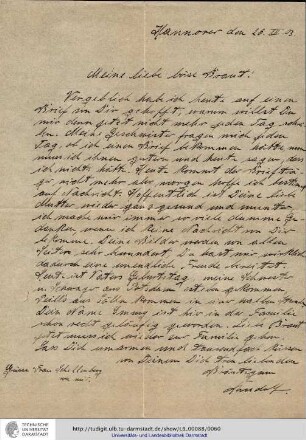 Hannover den 26. IV 13
Meine liebe böse Braut!
Vergeblich hab ich heute auf einen
Brief von Dir gehofft, warum willst Du
mir denn jetzt nicht mehr jeden Tag schrei-
ben. Meine Geschwister fragen mich jeden
Tag ob ich einen Brief bekommen hätte nun
muss ich ihnen gestern und heute sagen, dass
ich nicht hatte. Heute kommt der Briefträ-
ger nicht mehr aber morgen hoffe ich bestimmt
auf Nachricht. Hoffentlich ist Deine liebe
Mutter wieder ganz gesund und munter,
ich mache mir immer so viele dumme Ge-
danken, wenn ich keine Nachricht von Dir
bekomme. Deine Bilder werden von allen
Seiten sehr bewundert. Du hast mir wirklich
damit eine unendliche Freude bereitet.
Heute ist Vaters Geburtstag, meine Schwester
u Schwager aus Potsdam sind gekommen
aus Cöln kommen in einer halben Stunde.
Dein Name Emmy ist hier in der Familie
schon recht geläufig geworden. Liebe Braut
jetzt muss ich wieder zur Familie gehen.
Lass Dich umarmen und tausendmal küssen
von Deinem Dich treu liebenden
Bräutigam
Grüsse Frau
von mir!
TECHNISCHE
UNIVERSITÄT
DARMSTADT
http://tudigit.ulb.tu-darmstadt.de/show/LB.00088_0060
Universitäts- und Landesbibliothek Darmstadt